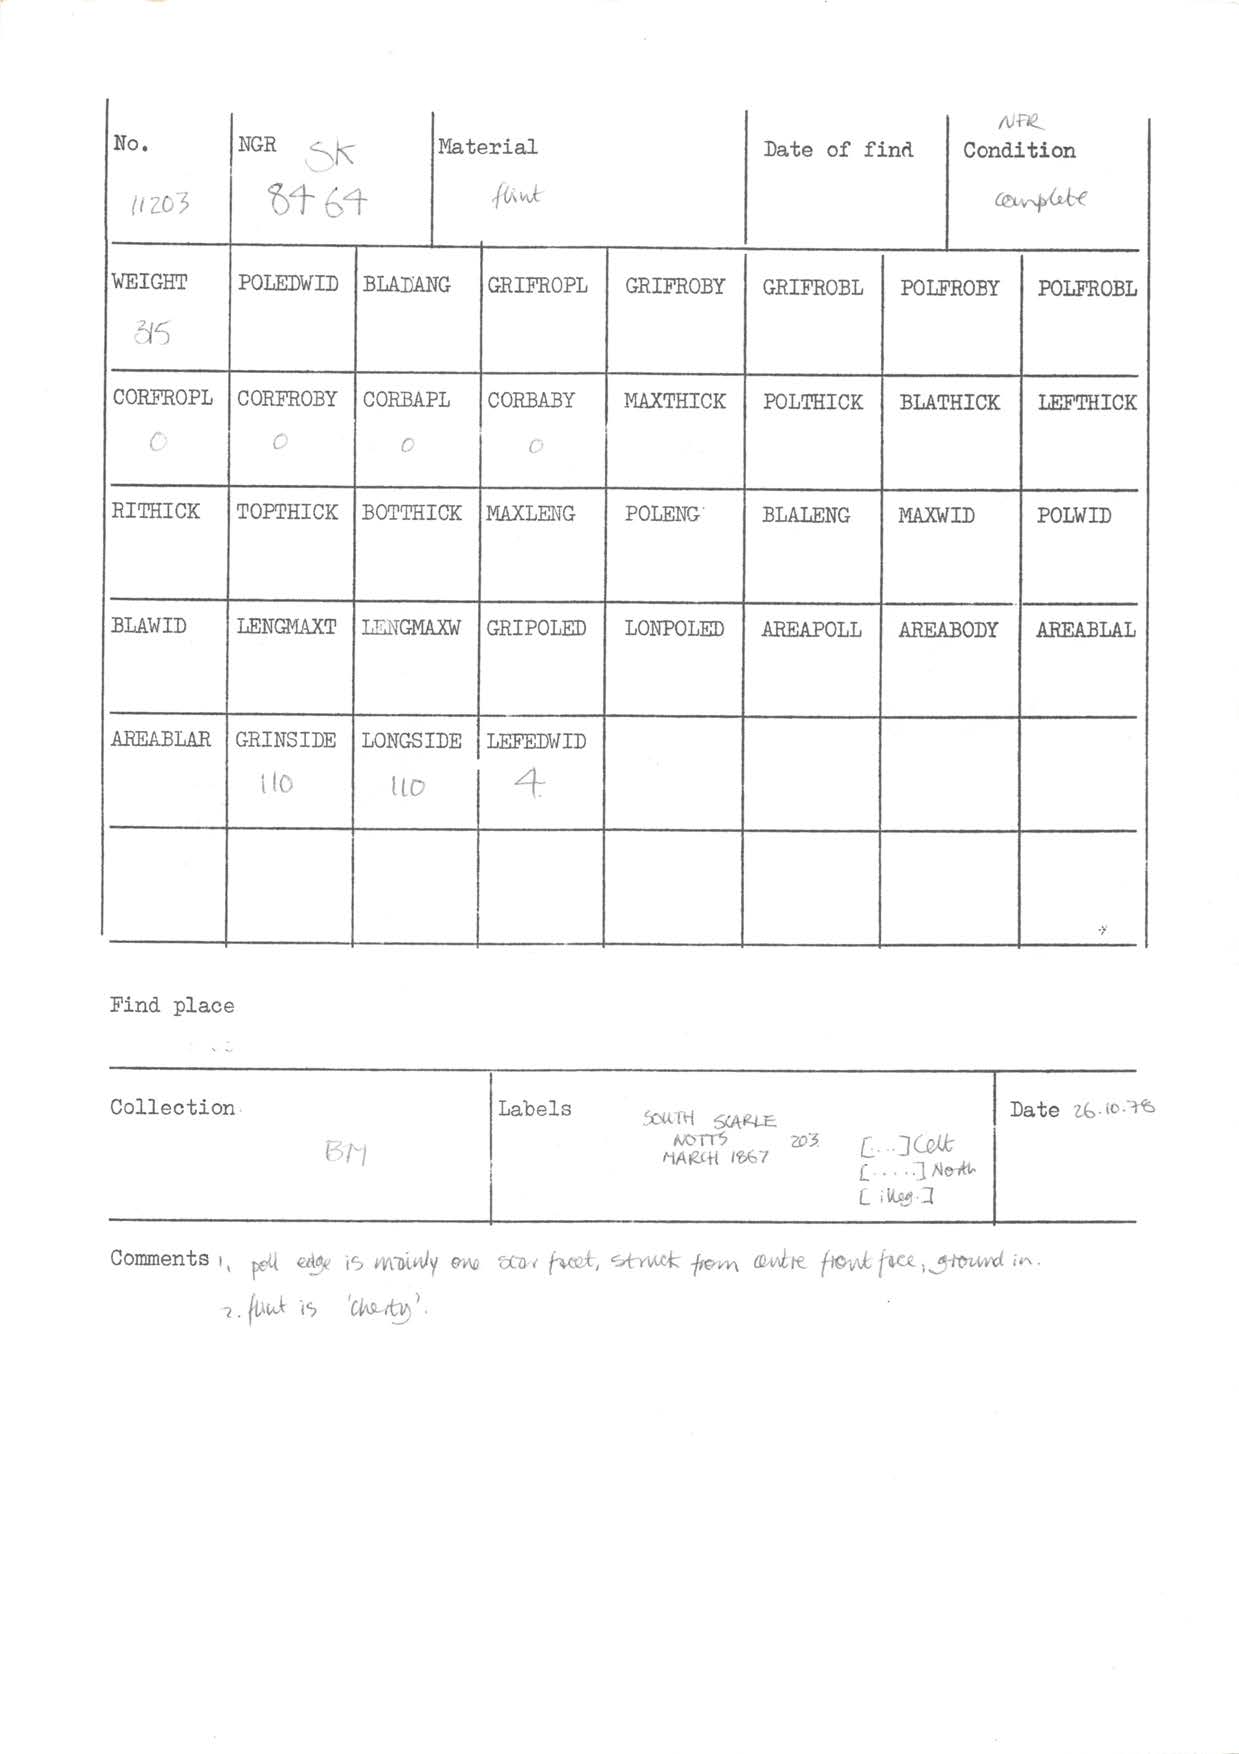 NFR
No. NGR SK Material Date of find Condition
11203 8464 flint complete
WEIGHT POLEDWID BLADANG GRIFROPL GRIFROBY GRIFROBL POLFROBY POLFROBL
315
CORFROPL CORFROBY CORBAPL CORBABY MAXTHICK POLTHICK BLATHICK LEFTHICK
0 0 0 0
RITHICK TOPTHICK BOTTHICK MAXLENG POLENG BLALENG MAXWID POLWID
BLAWID LENGMAXT LENGMAXW GRIPOLED LONPOLED AREAPOLL AREABODY AREABLAL
AREABLAR GRINSIDE LONGSIDE LEFEDWID
110 110 4
Find place
Collection Labels Date 26.10.78
BM
SOUTH SCARLE
NOTTS 203
MARCH 1867
[...] Celt
[.....] North
[illeg.]
Comments 1. poll edge is mainly one scar facet, struck from centre front face, ground in.
2. flint is 'cherty'.